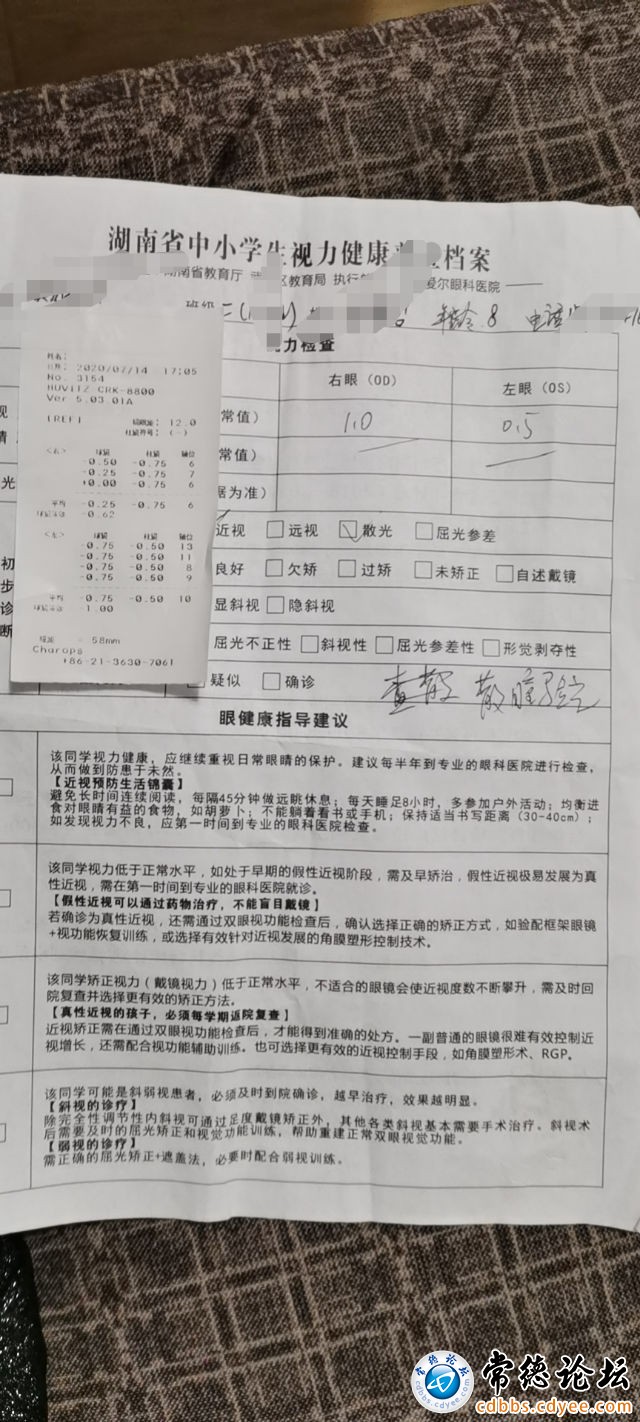 湖南省中小学生视力健康
湖南省教育厅 区教育局 执行 爱尔眼科医院
班级 年龄 8 电话
视力检查
姓名:
日期: 2020/07/14 17:05
No. 3154
HUVITZ CRK-8800
Ver 5.03.01A
[REF] 12.0
柱镜符号: (-)
<右> 球镜 柱镜 轴位
-0.50 -0.75 6
-0.25 -0.75 7
+0.00 -0.75 6
平均 -0.25 -0.75 6
-0.62
<左> 球镜 柱镜 轴位
-0.75 -0.50 13
-0.75 -0.50 11
-0.75 -0.50 8
-0.75 -0.50 9
平均 -0.75 -0.50 10
-1.00
= 58mm
Charops
+86-21-3630-7061
右眼(OD) 左眼(OS)
常值) 1.0 0.5
常值)
据为准)
近视 远视 散光 屈光参差
良好 欠矫 过矫 未矫正 自述戴镜
显斜视 隐斜视
屈光不正性 斜视性 屈光参差性 形觉剥夺性
疑似 确诊 散瞳验光
眼健康指导建议
该同学视力健康，应继续重视日常眼睛的保护。建议每半年到专业的眼科医院进行检查，
从而做到防患于未然。
【近视预防生活锦囊】
避免长时间连续阅读，每隔45分钟做远眺休息；每天睡足8小时，多参加户外活动；均衡进
食对眼睛有益的食物，如胡萝卜；不能躺着看书或手机；保持适当书写距离（30-40cm）；
如发现视力不良，应第一时间到专业的眼科医院检查。
该同学视力低于正常水平，如处于早期的假性近视阶段，需及早矫治，假性近视极易发展为真
性近视，需在第一时间到专业的眼科医院就诊。
【假性近视可以通过药物治疗，不能盲目戴镜】
若确诊为真性近视，还需通过双眼视功能检查后，确认选择正确的矫正方式，如验配框架眼镜
+视功能恢复训练，或选择有效针对近视发展的角膜塑形控制技术。
该同学矫正视力（戴镜视力）低于正常水平，不适合的眼镜会使近视度数不断攀升，需及时回
院复查并选择更有效的矫正方法。
【真性近视的孩子，必须每学期返院复查】
近视矫正需在通过双眼视功能检查后，才能得到准确的处方。一副普通的眼镜很难有效控制近
视增长，还需配合视功能辅助训练。也可选择更有效的近视控制手段，如角膜塑形术、RGP。
该同学可能是斜弱视患者，必须及时到院确诊，越早治疗，效果越明显。
【斜视的诊疗】
除完全性调节性内斜视可通过足度戴镜矫正外，其他各类斜视基本需要手术治疗。斜视术
后需要及时的屈光矫正和视觉功能训练，帮助重建正常双眼视觉功能。
【弱视的诊疗】
需正确的屈光矫正+遮盖法，必要时配合弱视训练。
常德论坛
cdbbs.cdyee.com